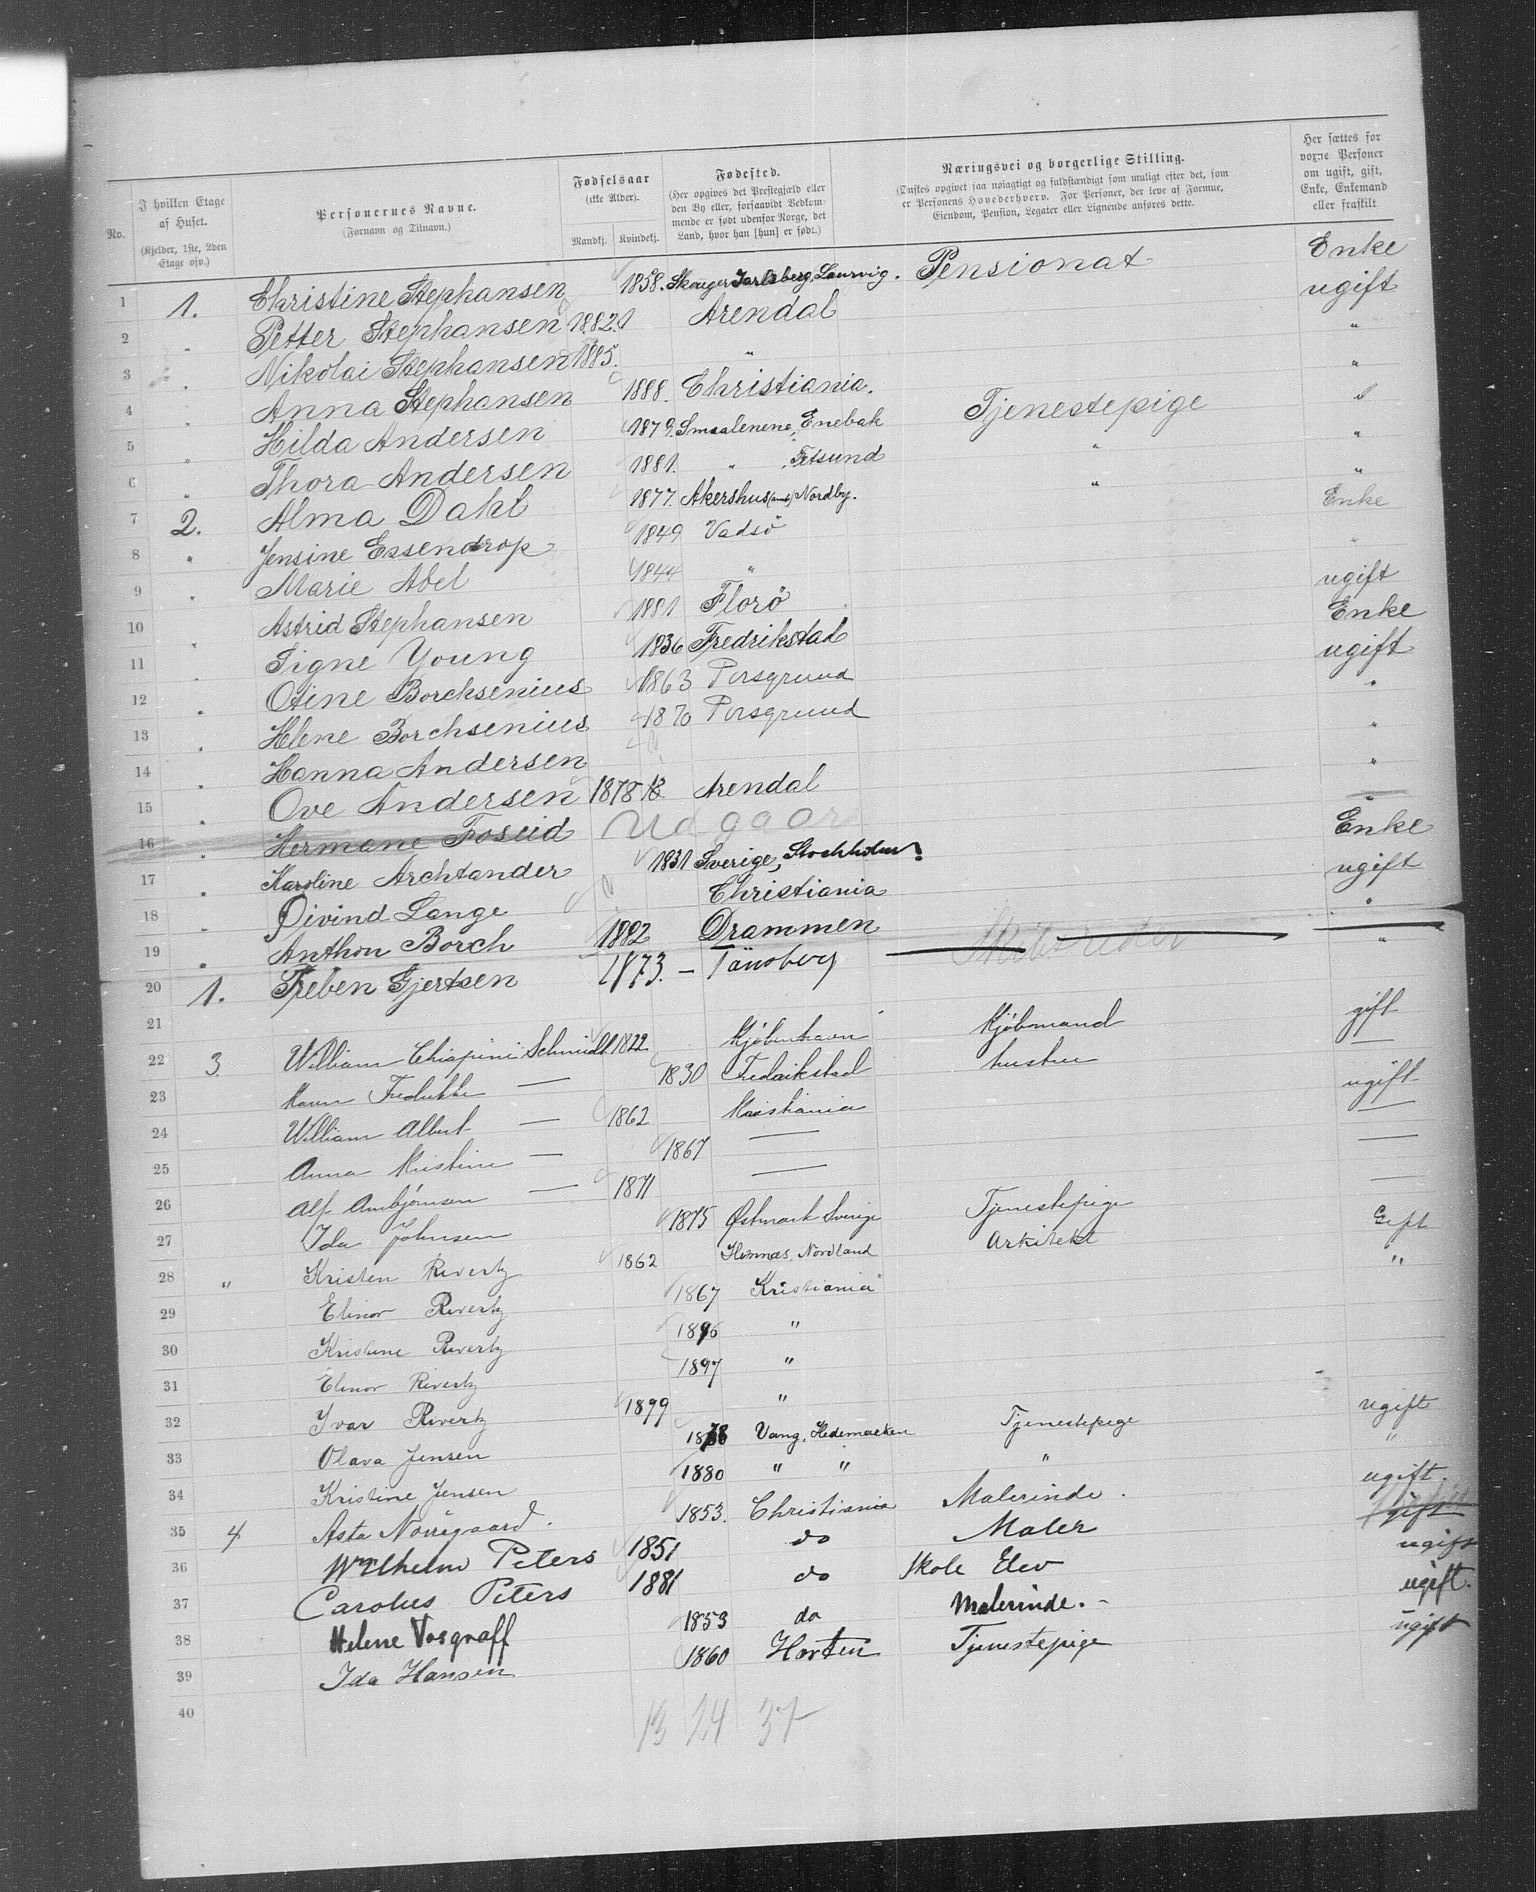 No.
I hvilken Etage af Huset. (Kjelder, 1ste, 2den Etage osv.)
Personernes Navne. (Fornavn og Tilnavn.)
Fødselsaar (ikke Alder).
Mandkj. Kvindekj.
Fødested. (Her opgives det Prestegjæld eller den By eller, forsaavidt Vedkommende er født udenfor Norge, det Land, hvor han [hun] er født.)
Næringsvei og borgerlige Stilling. (Ønskes opgivet saa nøiagtigt og fuldstændigt som muligt efter det, som er Personens Hovederhverv. For Personer, der leve af Formue, Eiendom, Pension, Legater eller Lignende anføres dette.
Her sættes for voxne Personer om ugift, gift, Enke, Enkemand eller fraskilt.
1 1. Christine Stephansen 1858. Skouger Jarlsberg, Laurvig. Pensionat Enke
2 " Petter Stephansen 1882. Arendal ugift
3 " Nikolai Stephansen 1885. " "
4 " Anna Stephansen 1888. Christiania. "
5 " Hilda Andersen 1879. Smaalenene, Enebak Tjenestepige "
6 " Thora Andersen 1881. " Fetsund " "
7 2. Alma Dahl 1877. Akershus (amt) Nordby. " "
8 " Jensine Essendrop 1849 Vadsö Enke
9 " Marie Abel 1844 " "
10 " Astrid Stephansen 1881 Florö ugift
11 " Signe Young 1836 Fredrikstad Enke
12 " Otine Borchsenius 1863 Porsgrund ugift
13 " Helene Borchsenius 1870 Porsgrund "
14 " Hanna Andersen "
15 " Ove Andersen 1878 Arendal "
16 " Hermane Foseid Udgaar "
17 " Karoline Archtander 1831 Sverige, Stockholm Enke
18 " Øivind Lange Christiania ugift
19 " Anthon Borch 1882 Drammen "
20 1. Preben Gjertsen 1873. – Tönsberg Skibsreder "
21
22 3. William Chiapini Schmidt 1822 Kjøbenhavn Kjøbmand gift
23 Maren Fredrikke — 1830 Fredrikstad hustru —
24 William Albert — 1862 Kristiania ugift
25 Anna Kristine — 1867 — —
26 Alf Ambjørnsen — 1871 — —
27 Ida Johnsen 1875 Østmark Sverige Tjenestepige —
28 " Kristen Rivertz 1862 Hemnæs, Nordland Arkitekt Gift
29 Elinor Rivertz 1867 Kristiania "
30 Kristine Rivertz 1896 "
31 Elinor Rivertz 1897 "
32 Ivar Rivertz 1899 "
33 Olava Jensen 1878 Vang, Hedemarken Tjenestepige ugift
34 Kristine Jensen 1880 " " " "
35 4 Asta Nörregaard. 1853. Christiania Malerinde. ugift.
36 Wilhelm Peters 1851 do Maler gift
37 Carolus Peters 1881 do Skole Elev ugift
38 Helene Vosgraff 1853 do Malerinde. – ugift.
39 Ida Hansen 1860 Horten Tjenestepige ugift
40
13 24 37